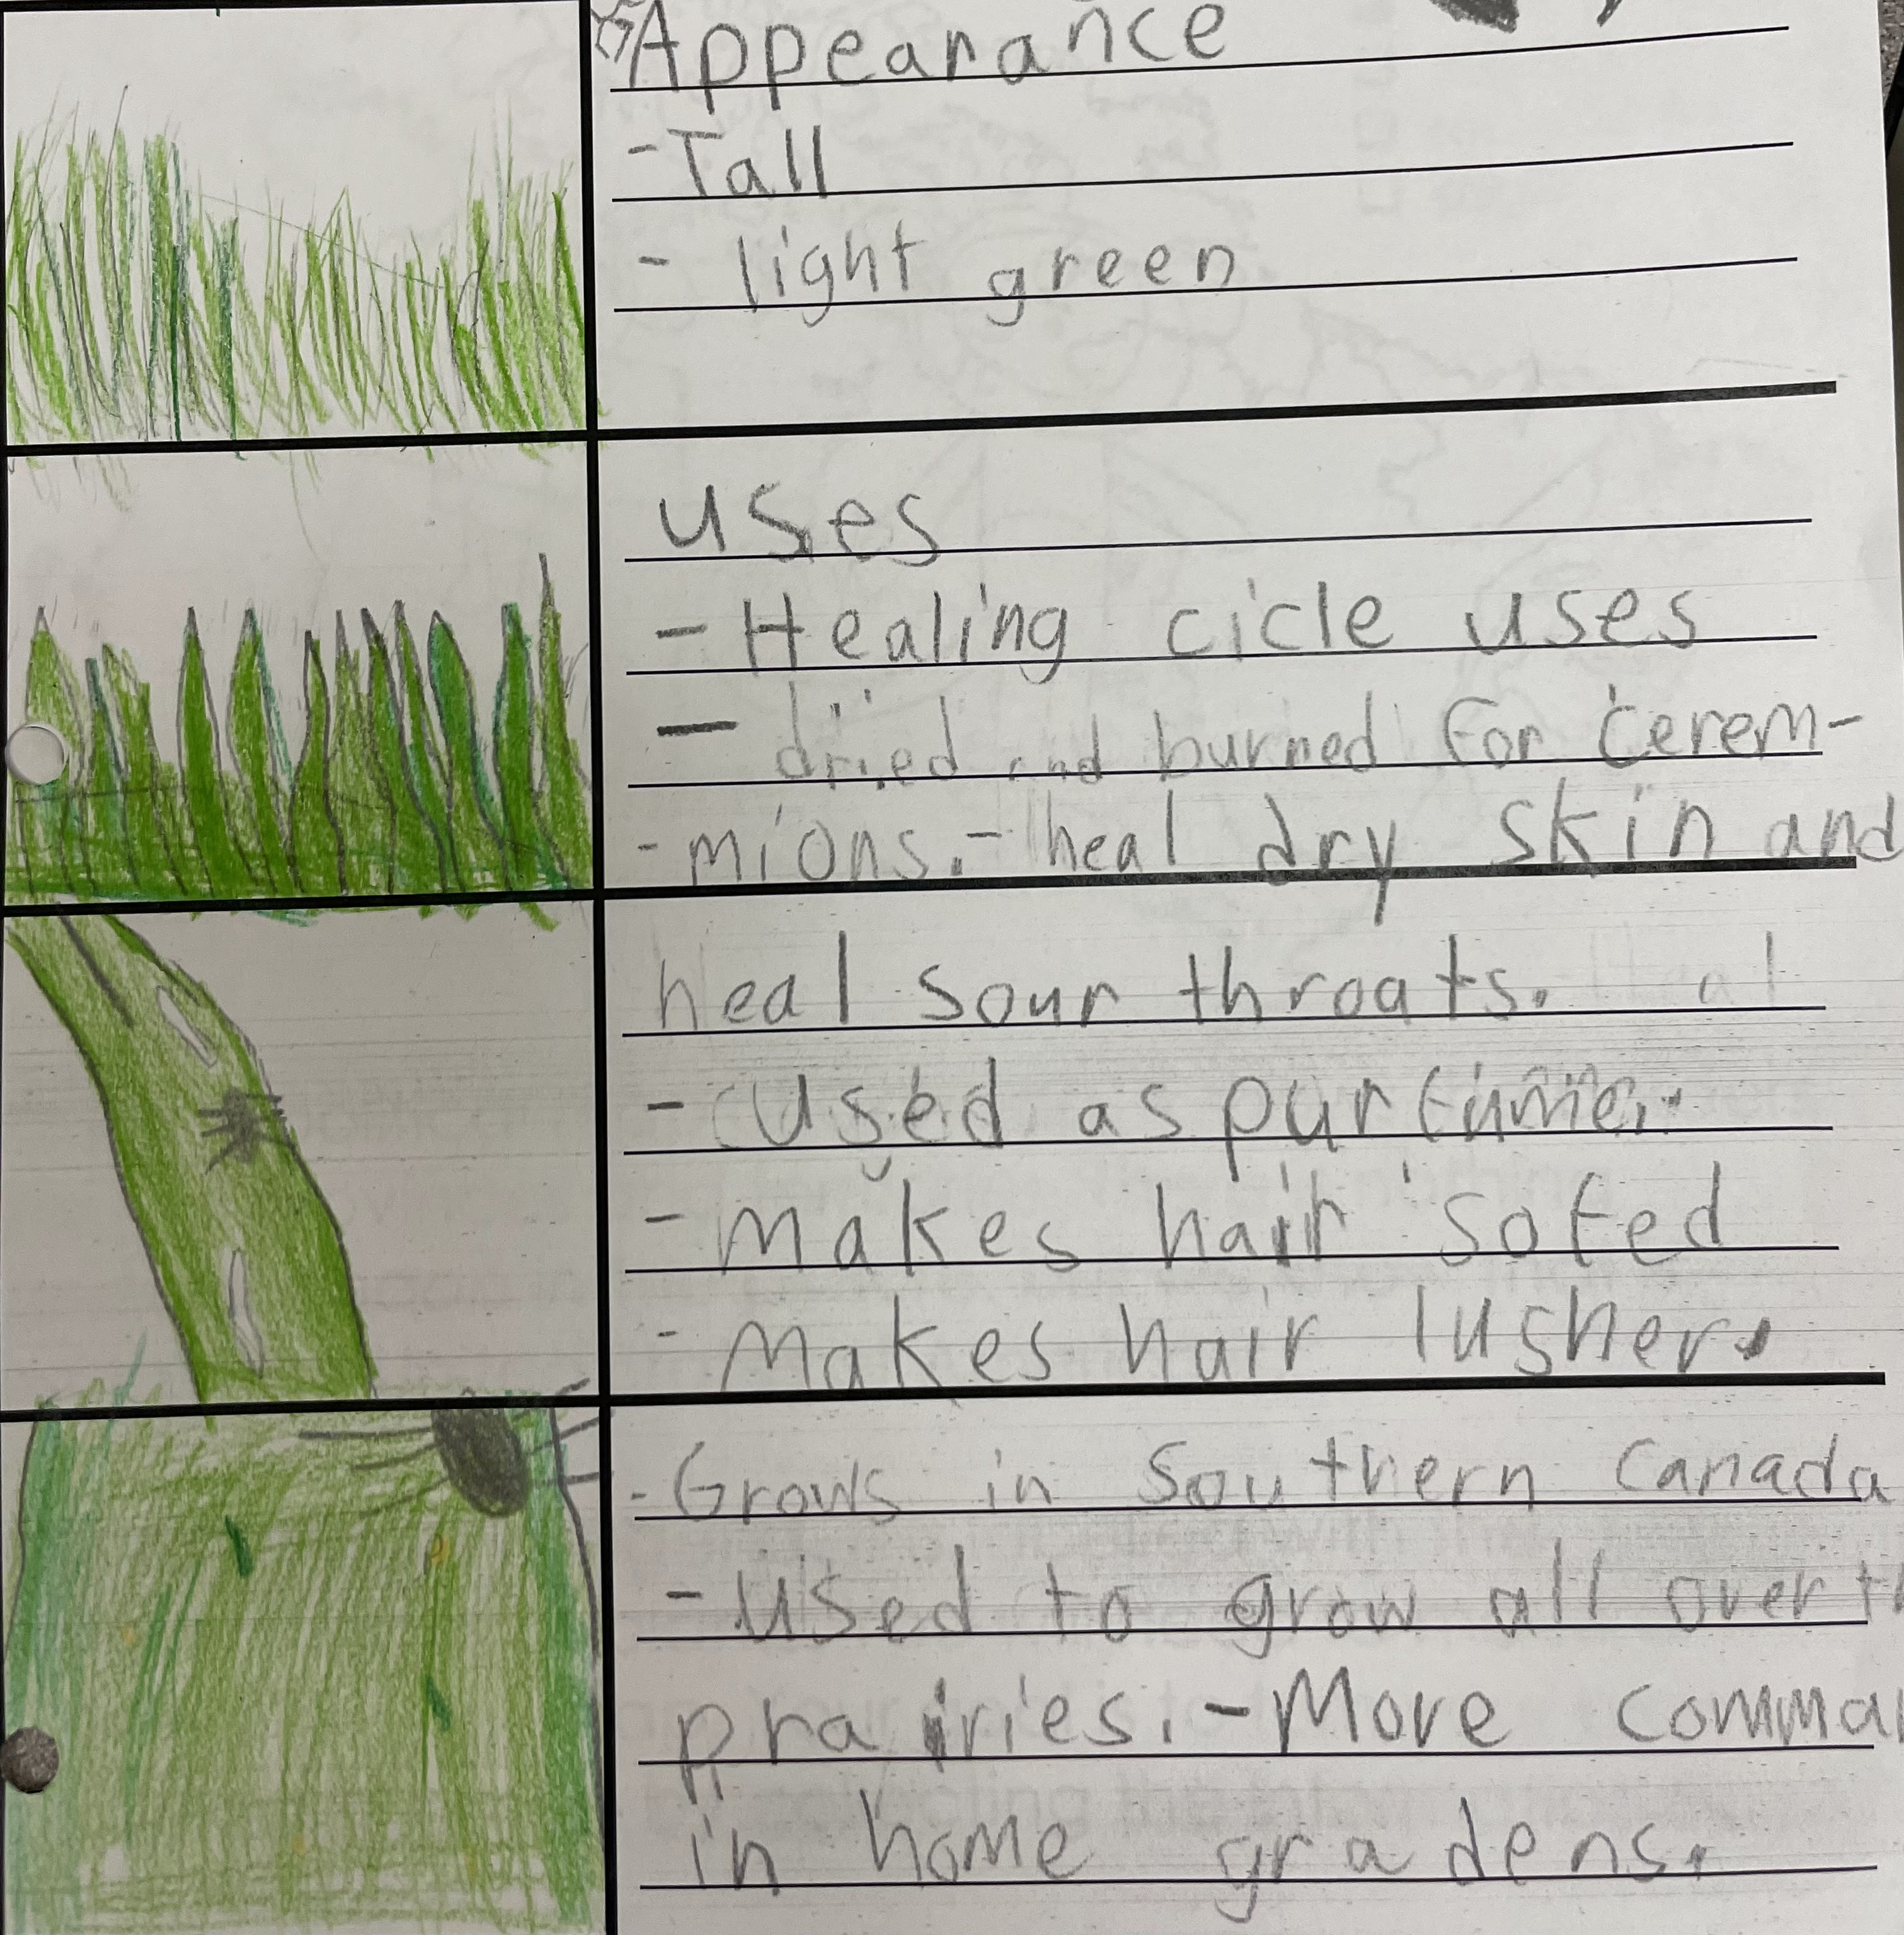 Appearance
- Tall
- light green
uses
- Healing cicle uses
- dried and burned for cerem-
- mions. - heal dry skin and
heal sour throats.
- used as purfume.
- makes hair sofed
- Makes hair lusher.
- Grows in Southern Canada
- Used to grow all over th
prairies. - More comma
in home gradens.